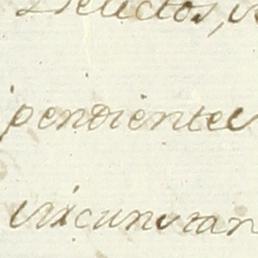 Selectos,
pendientes
circunstan